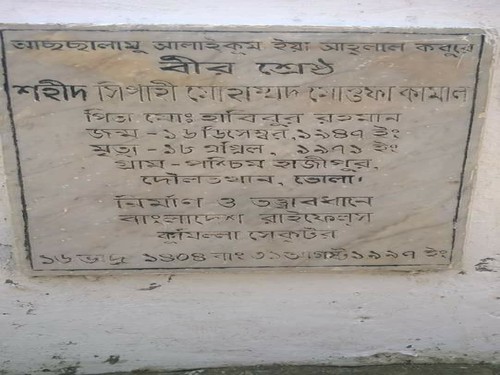 আছছালামু আলাইকুম ইয়া আহলাল কবুরে
বীর শ্রেষ্ঠ
শহীদ সিপাহী মোহাম্মদ মোস্তফা কামাল
পিতা মোঃ হাবিবুর রহমান
জন্ম - ১৬ ডিসেম্বর, ১৯৪৭ ইং
মৃত্যু - ১৮ এপ্রিল, ১৯৭১ ইং
গ্রাম - পশ্চিম হাজীপুর,
দৌলতখান, ভোলা।
নির্মাণ ও তত্ত্বাবধানে
বাংলাদেশ রাইফেল্‌স
কুমিল্লা সেক্টর
১৬ ভাদ্র ১৪০৪ বাং ৩১ আগষ্ট ১৯৯৭ ইং